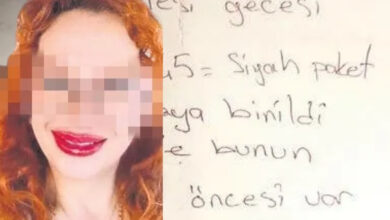 esi gecesi
45 = Siyah paket
aya binildi
e bunun
öncesi var